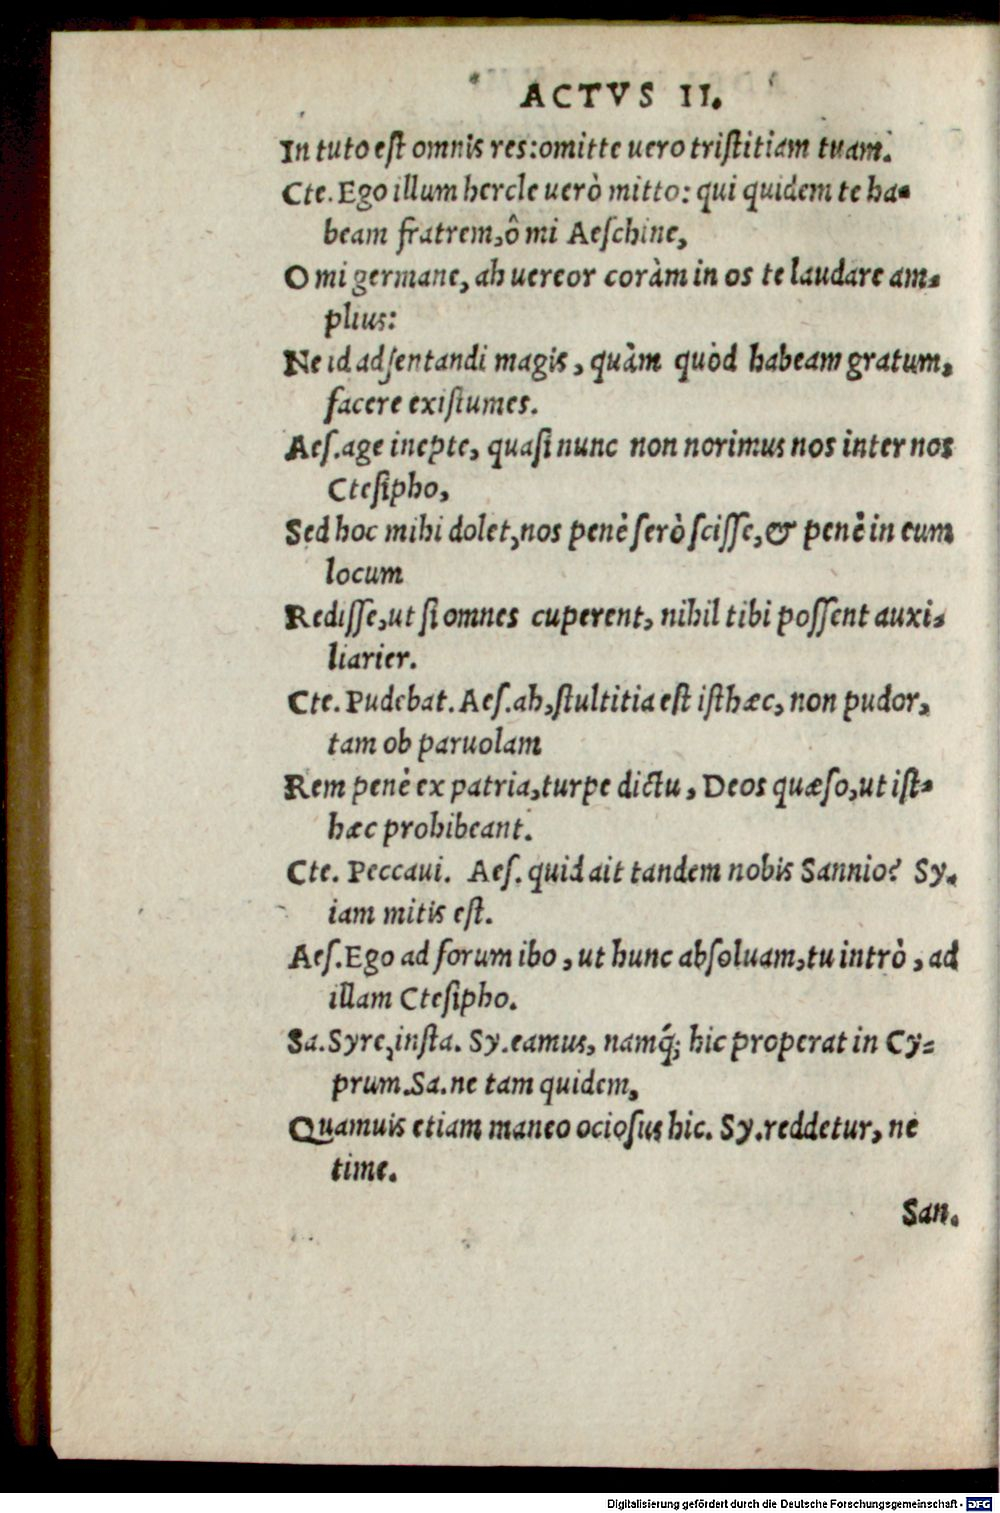 ACTVS II.
In tuto eſt omnis res: omitte uero triſtitiam tuam.
Cte. Ego illum hercle uerò mitto: qui quidem te ha-
beam fratrem, ô mi Aeſchine,
O mi germane, ah uereor coràm in os te laudare am-
plius:
Ne id adſentandi magis, quàm quòd habeam gratum,
facere exiſtumes.
Aeſ. age inepte, quaſi nunc non norimus nos inter nos
Cteſipho,
Sed hoc mihi dolet, nos penè ſerò ſciſſe, & penè in eum
locum
Rediſſe, ut ſi omnes cuperent, nihil tibi poſſent auxi-
liarier.
Cte. Pudebat. Aeſ. ah, ſtultitia eſt iſthæc, non pudor,
tam ob paruolam
Rem penè ex patria, turpe dictu, Deos quæſo, ut iſt-
hæc prohibeant.
Cte. Peccaui. Aeſ. quid ait tandem nobis Sannio? Sy.
iam mitis eſt.
Aeſ. Ego ad forum ibo, ut hunc abſoluam, tu intrò, ad
illam Cteſipho.
Sa. Syre, inſta. Sy. eamus, namq́; hic properat in Cy-
prum. Sa. ne tam quidem,
Quamuis etiam maneo ocioſus hic. Sy. reddetur, ne
time.
San.
Digitalisierung gefördert durch die Deutsche Forschungsgemeinschaft - DFG